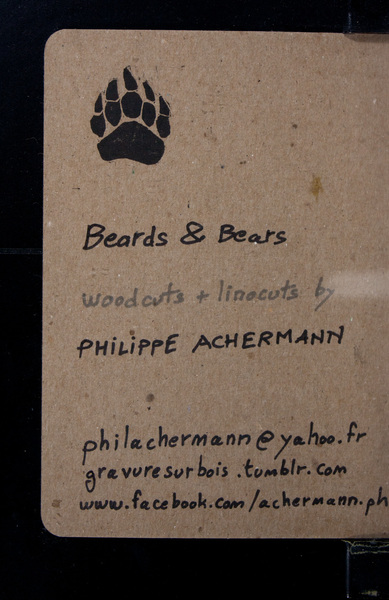 Beards & Bears
woodcuts + linocuts by
PHILIPPE ACHERMANN
philachermann@yahoo.fr
gravuresurbois.tumblr.com
www.facebook.com/achermann.ph